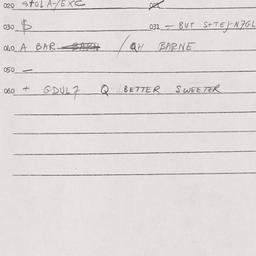 020 STOLA-/EXC 021
030 $ 031 - BUT
040 A BAR / QH BARNE
050 -
060 + GDUL7 Q BETTER SWEETER